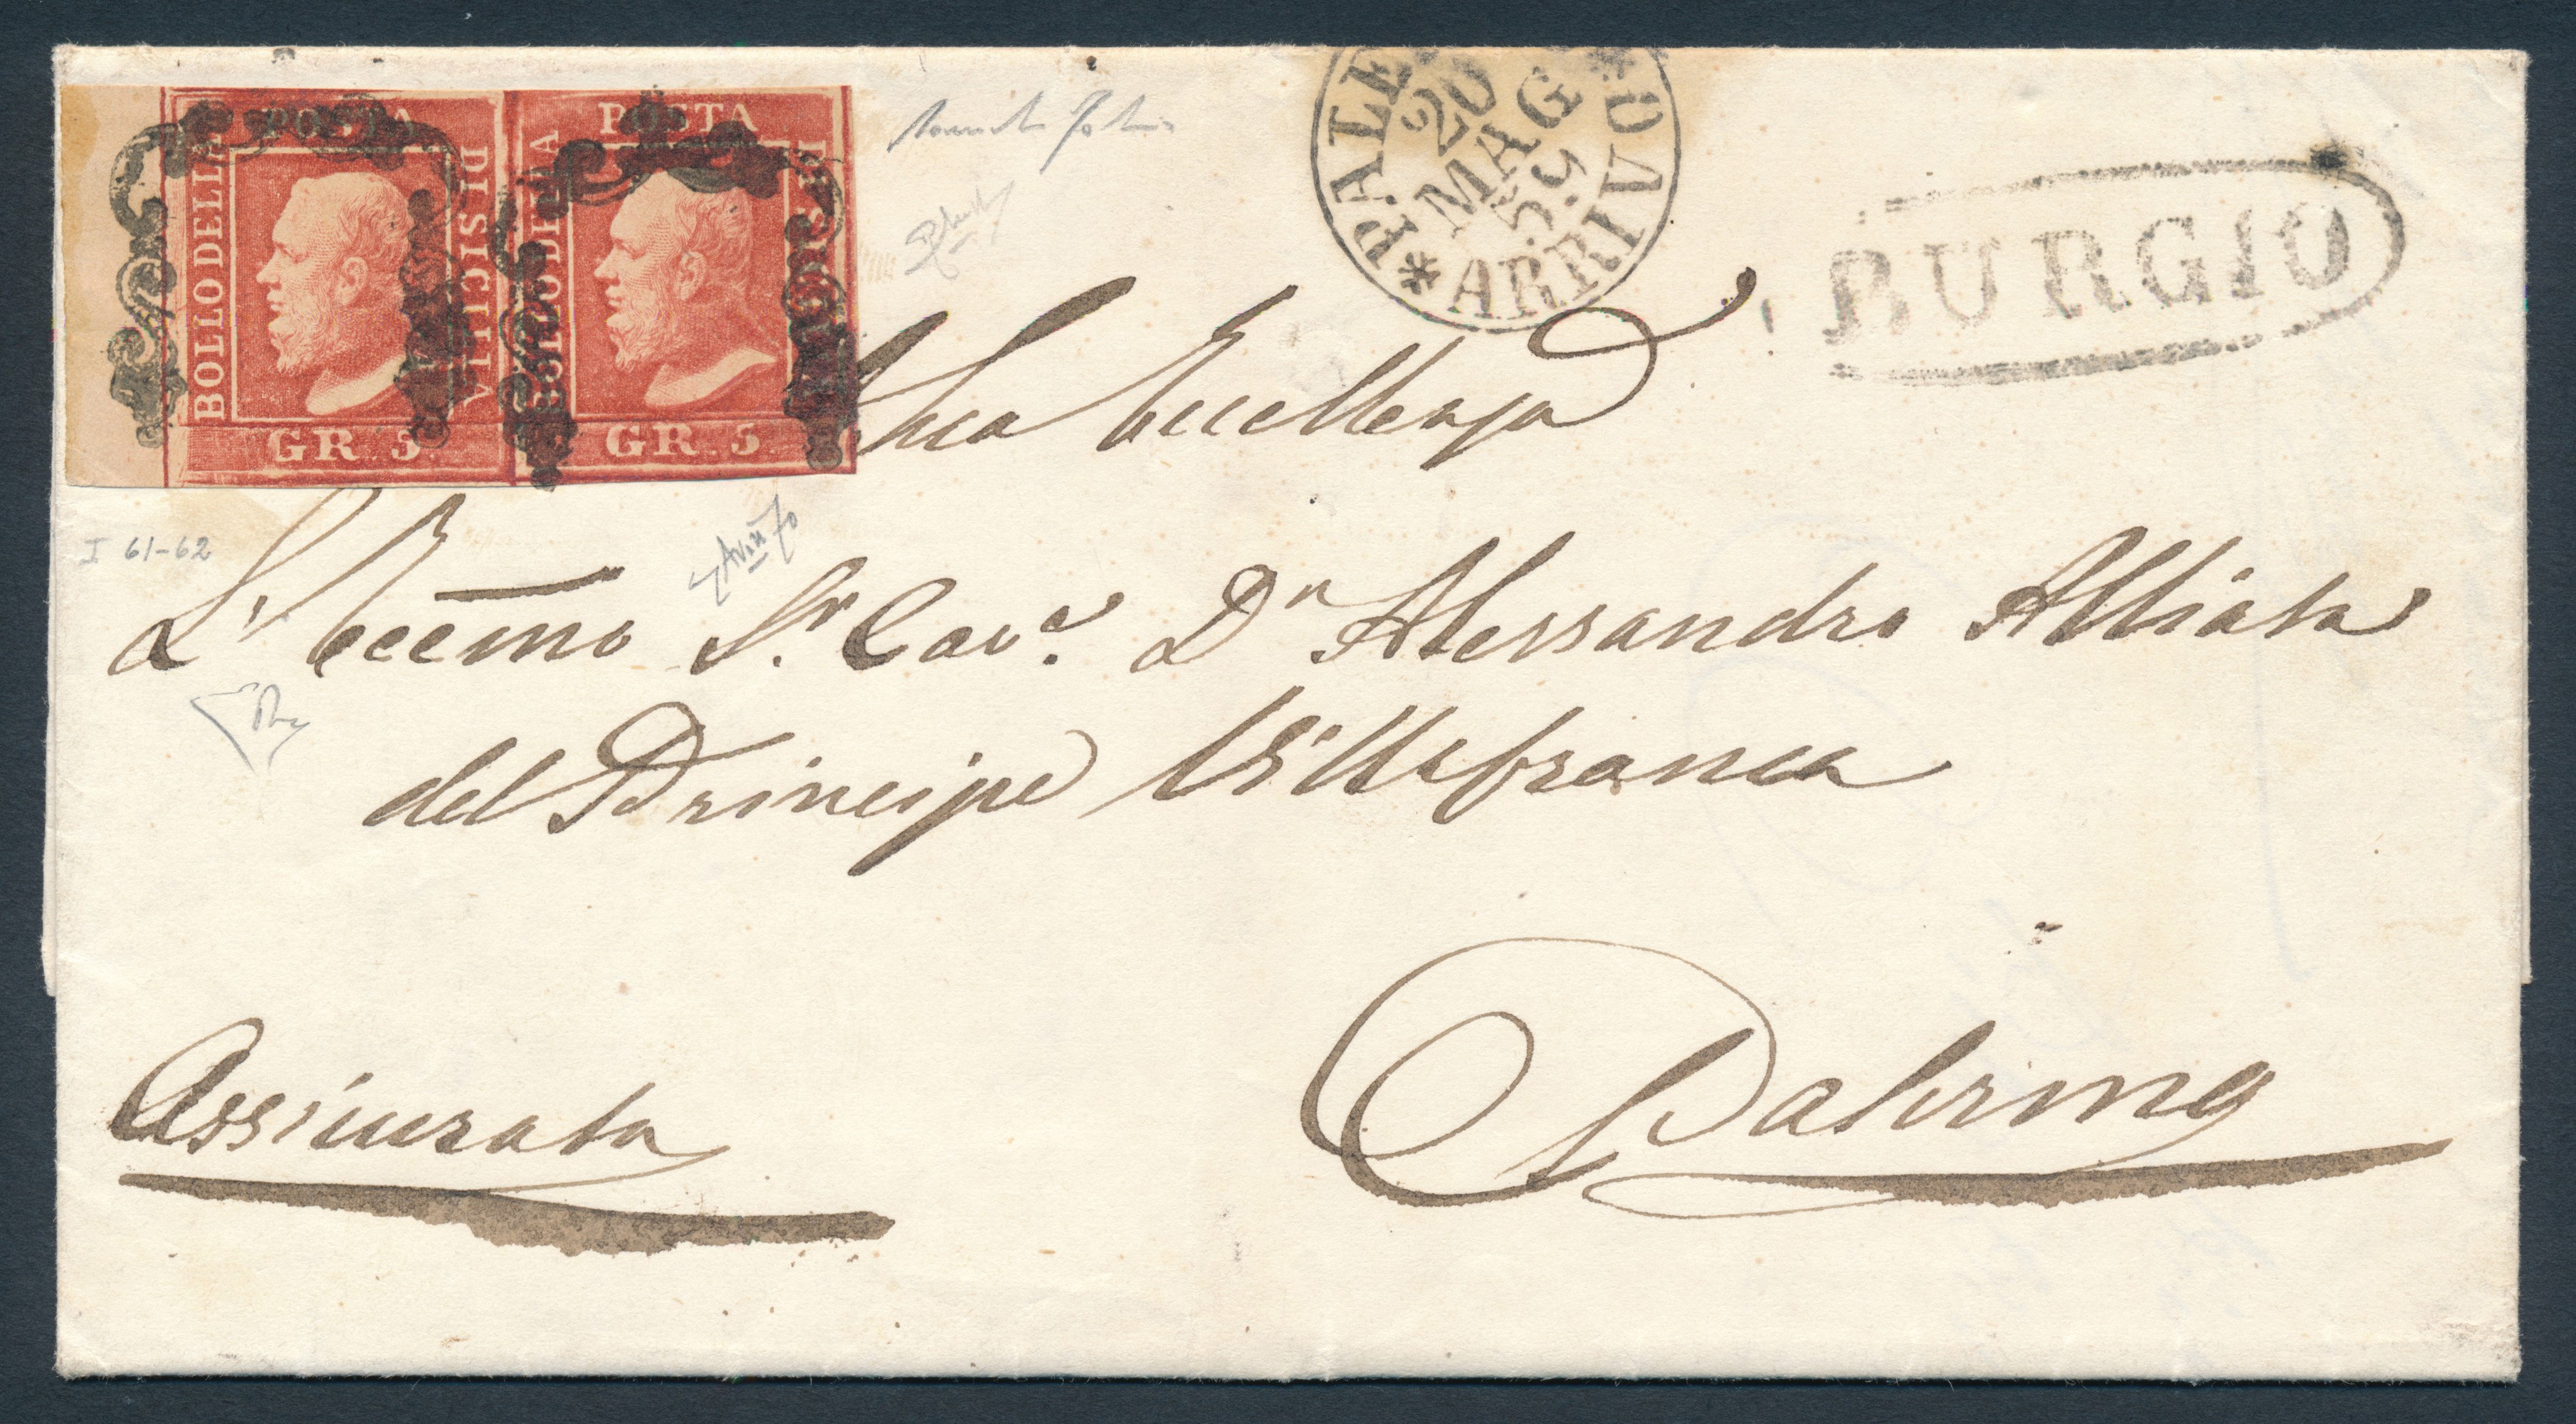 BOLLO DELLA POSTA DI SICILIA
GR. 5.
BOLLO DELLA POSTA DI SICILIA
GR. 5.
PALE
20
MAG
59
ARRIVO
BURGIO
Sua Eccellenza
I 61-62
L'Eccmo Sr. Cavre Dn Alessandro Alliata
del Principe Villafranca
Assicurata
Palermo